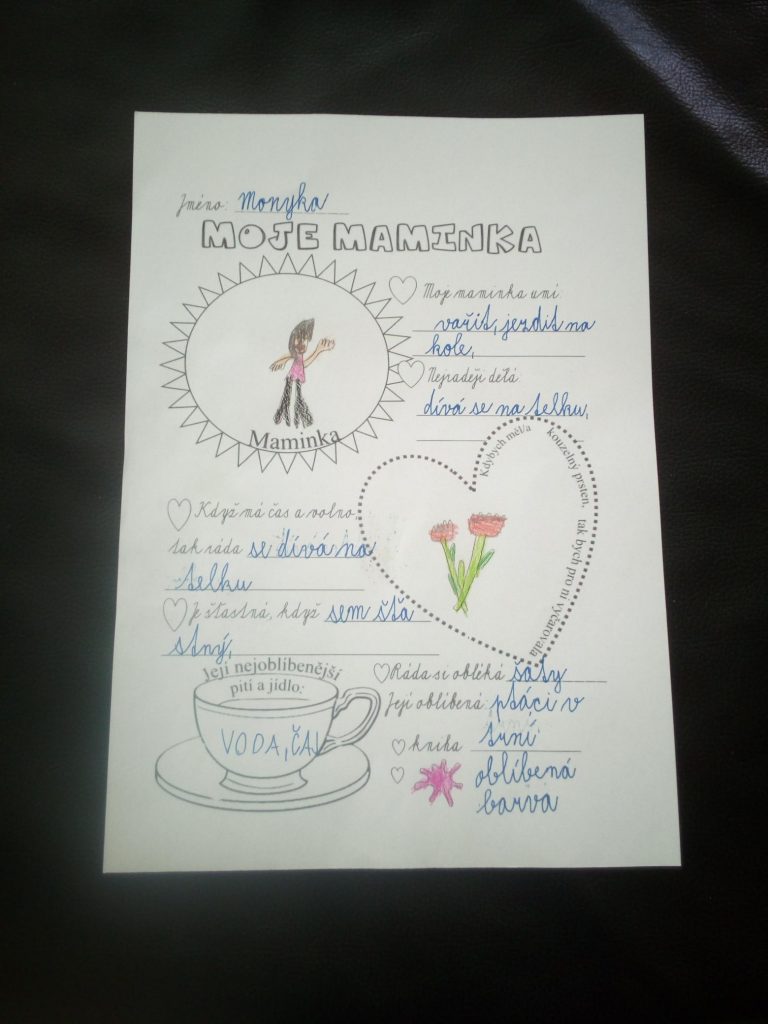 Jméno: Monyka
MOJE MAMINKA
Maminka
Moje maminka umí:
vařit, jezdit na
kole,
Nejraději dělá
dívá se na telku,
Kdybych měl/a kouzelný prsten, tak bych pro ni vyčarovala
Když má čas a volno,
tak ráda se dívá na
telku
Je šťastná, když sem šťa
stný,
Její nejoblíbenější
pití a jídlo:
VODA, ČAJ
Ráda si obléká šaty
Její oblíbená: ptáci v
kniha trní
oblíbená
barva